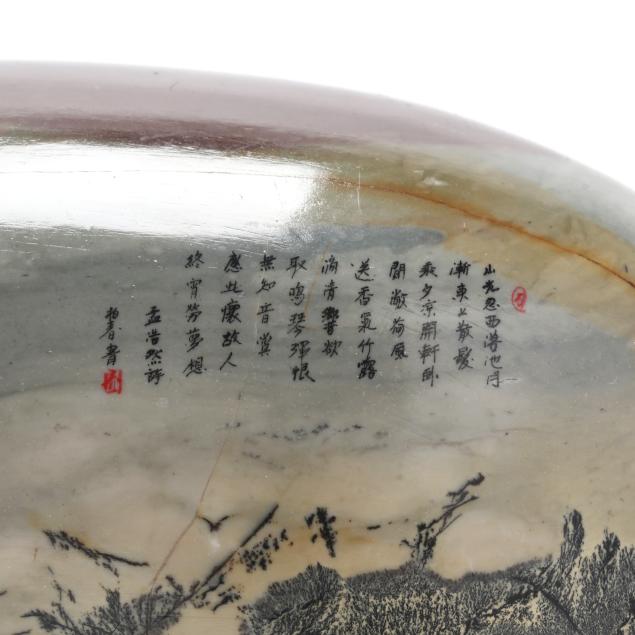 山光忽西落池月
渐东上散髮
乘夕凉開軒卧
閒敞荷風
送香氣竹露
滴清響欲
取鳴琴弹恨
無知音賞
感此懷故人
終宵勞夢想
孟浩然詩